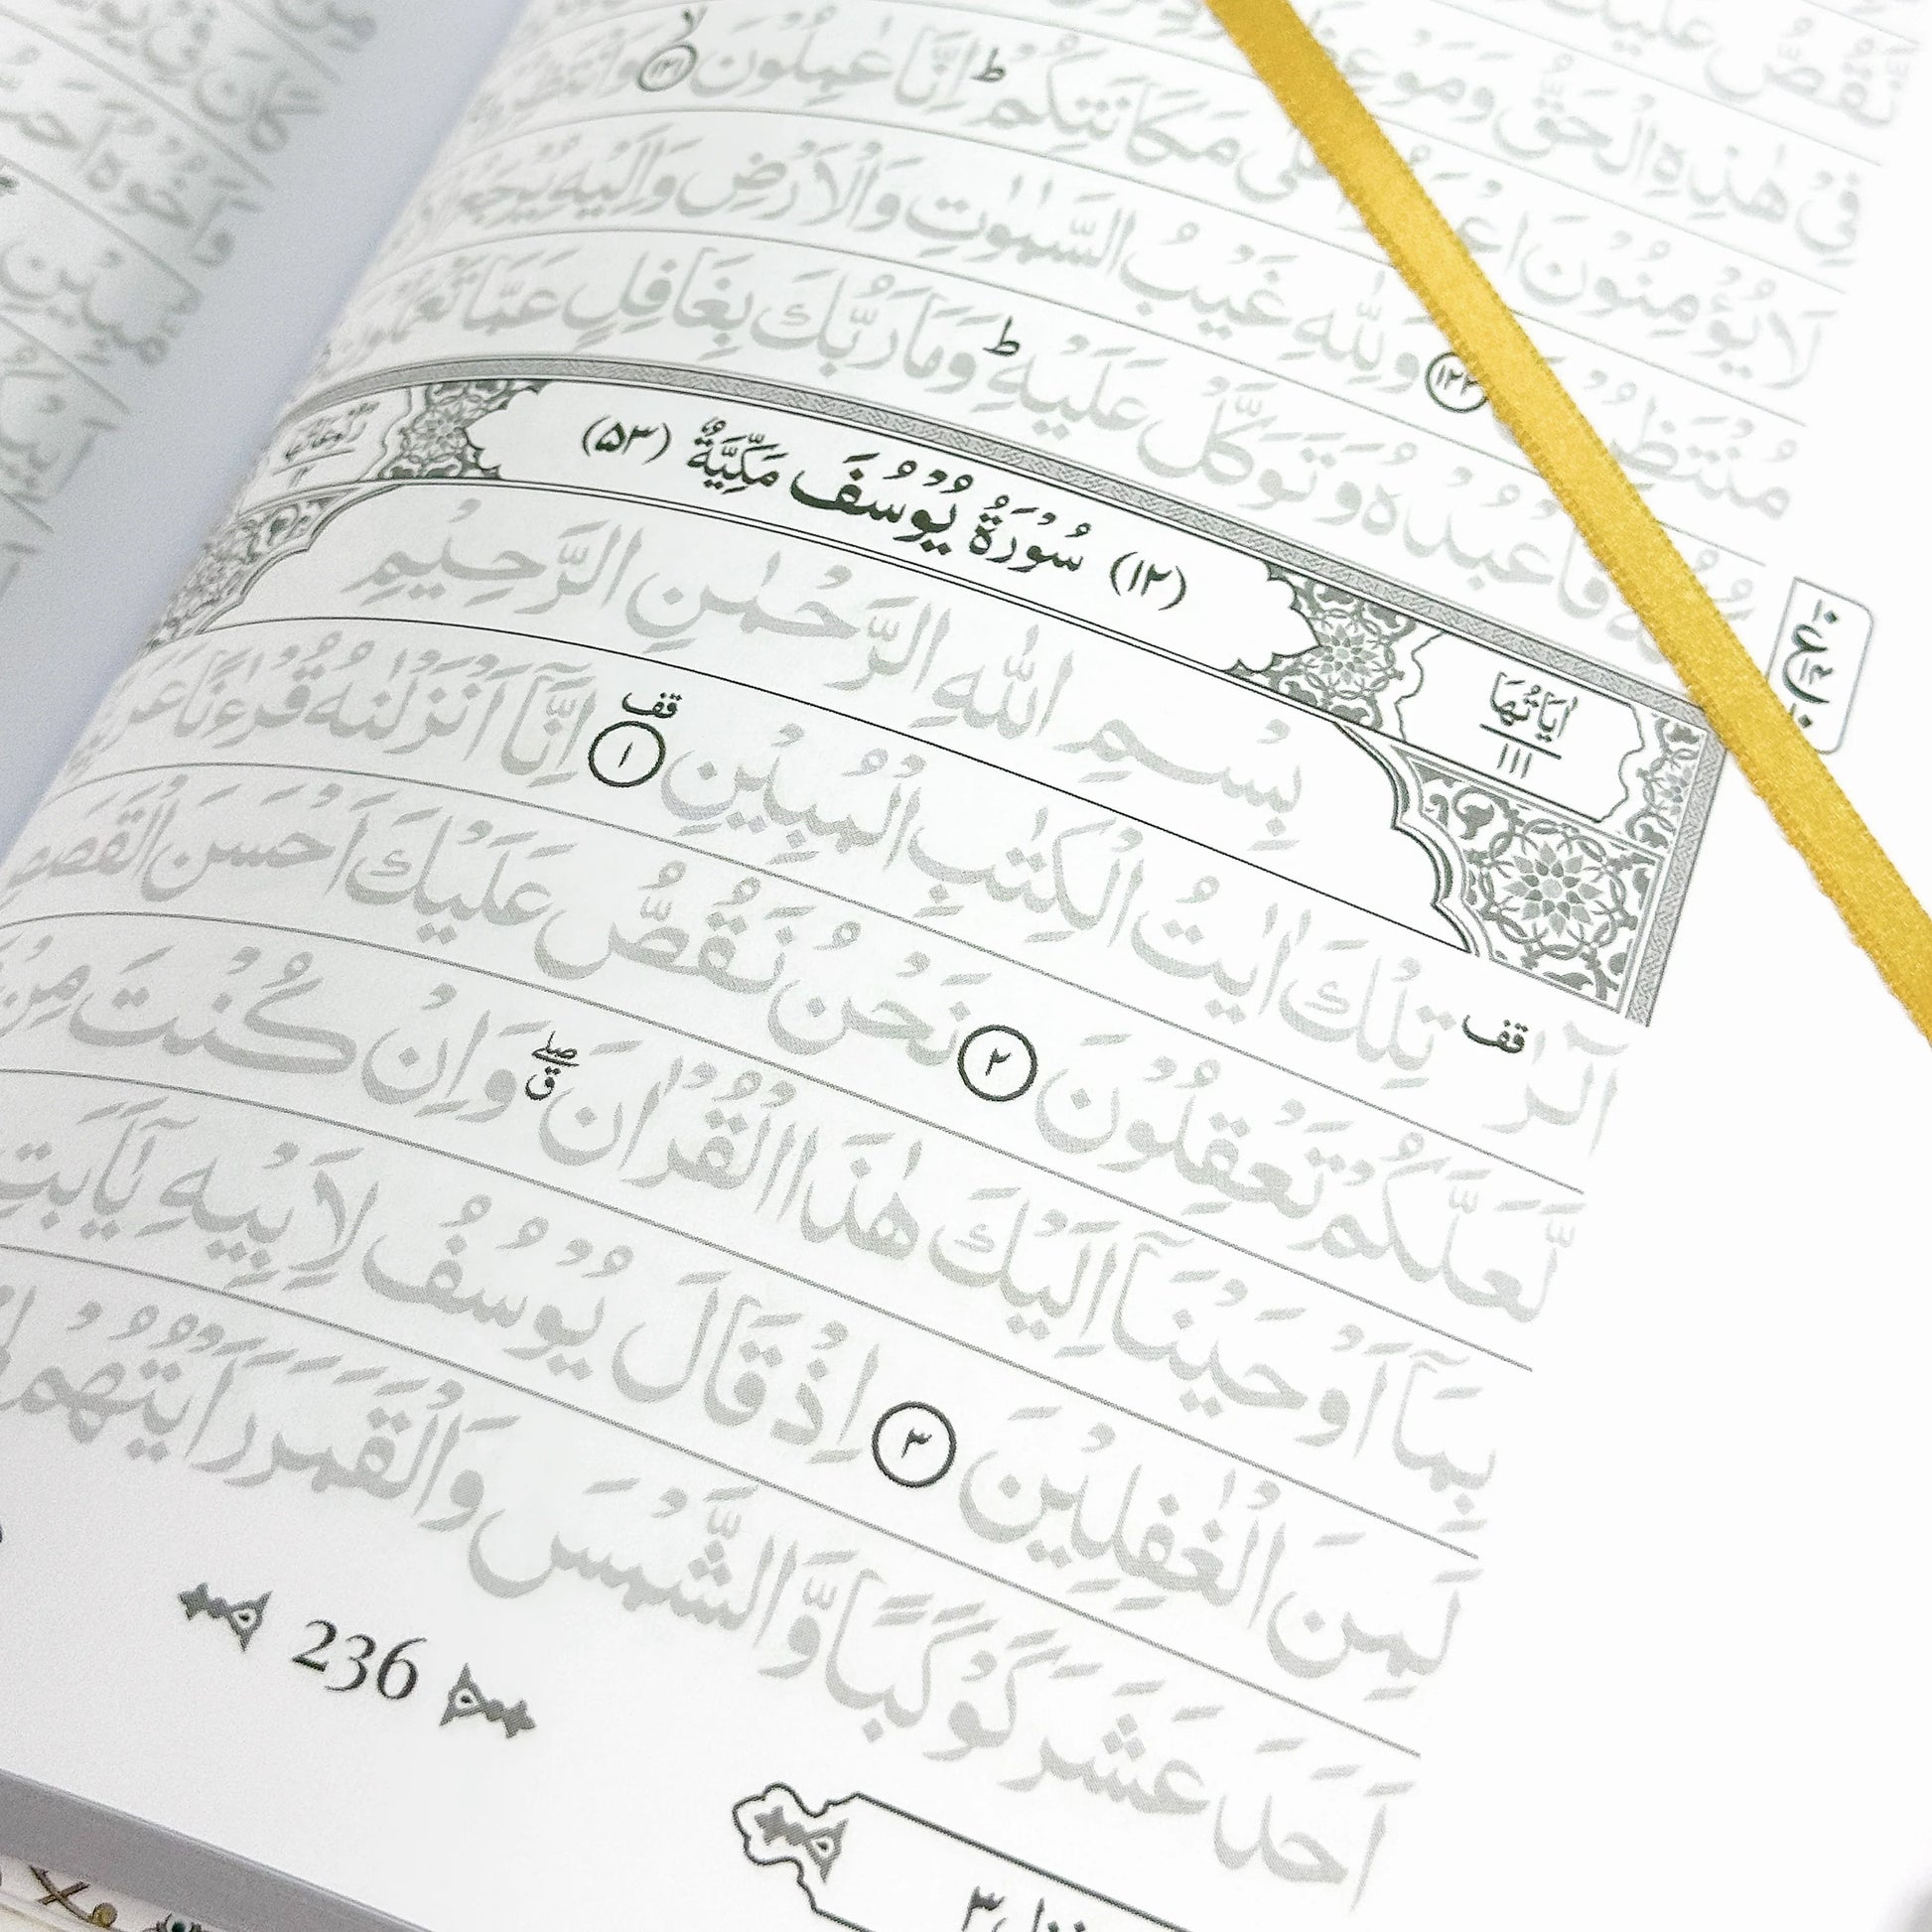 نَقُصُّ عَلَيْكَ
فِيْ هٰذِهِ الْحَقُّ وَمَوْعِظَةٌ
لَا يُؤْمِنُوْنَ اعْمَلُوْا عَلٰى مَكَانَتِكُمْ ؕ اِنَّا عٰمِلُوْنَ ۙ﴿۱۲۱﴾ وَانْتَظِرُوْا
مُنْتَظِرُوْنَ ﴿۱۲۲﴾ وَلِلّٰهِ غَيْبُ السَّمٰوٰتِ وَالْاَرْضِ وَاِلَيْهِ يُرْجَعُ
كُلُّهٗ فَاعْبُدْهُ وَتَوَكَّلْ عَلَيْهِ ؕ وَمَا رَبُّكَ بِغَافِلٍ عَمَّا تَعْمَلُوْنَ
اٰيَاتُهَا ۱۱۱ (۱۲) سُوْرَةُ يُوْسُفَ مَكِّيَّةٌ (۵۳)
بِسْمِ اللّٰهِ الرَّحْمٰنِ الرَّحِيْمِ
الٓرٰ قف تِلْكَ اٰيٰتُ الْكِتٰبِ الْمُبِيْنِ قف ﴿۱﴾ اِنَّآ اَنْزَلْنٰهُ قُرْءٰنًا
لَّعَلَّكُمْ تَعْقِلُوْنَ ﴿۲﴾ نَحْنُ نَقُصُّ عَلَيْكَ اَحْسَنَ الْقَصَصِ
بِمَآ اَوْحَيْنَآ اِلَيْكَ هٰذَا الْقُرْاٰنَ ۖق وَاِنْ كُنْتَ مِنْ
لَمِنَ الْغٰفِلِيْنَ ﴿۳﴾ اِذْ قَالَ يُوْسُفُ لِاَبِيْهِ يٰٓاَبَتِ
اَحَدَ عَشَرَ كَوْكَبًا وَّالشَّمْسَ وَالْقَمَرَ رَاَيْتُهُمْ
236
منزل ۳